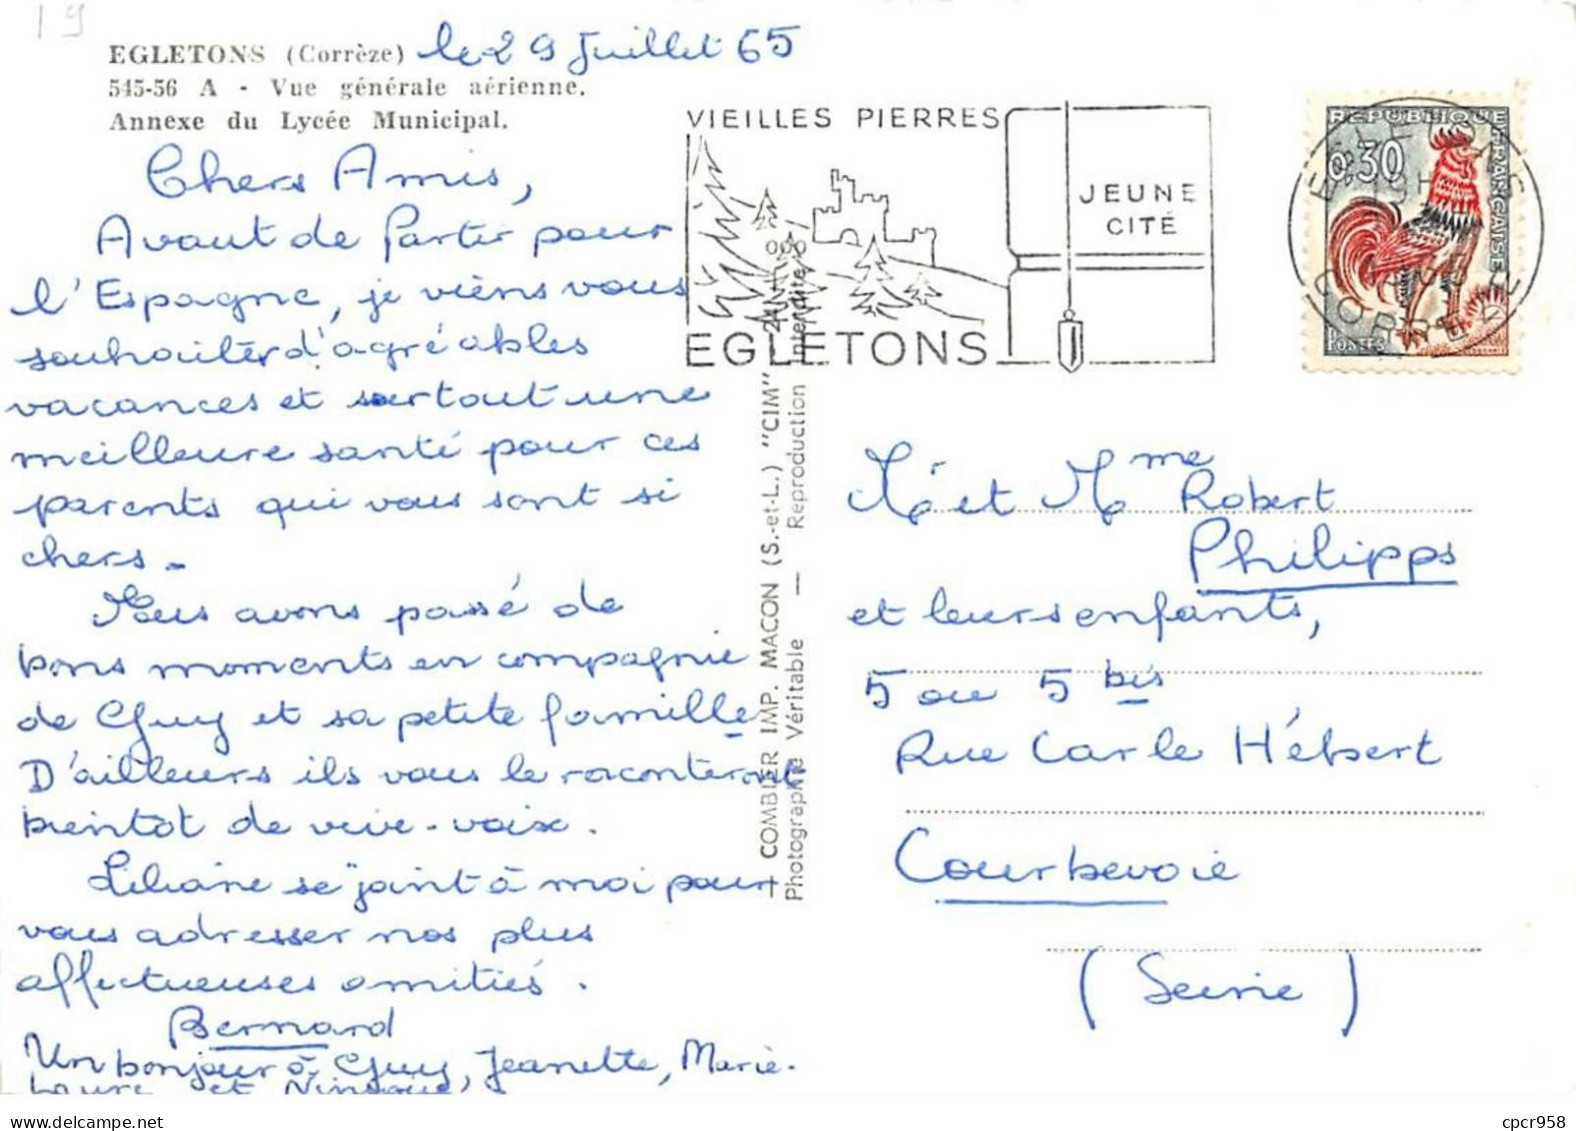 19
EGLETONS (Corrèze) le 29 Juillet 65
545-56 A - Vue générale aérienne.
Annexe du Lycée Municipal.
Chers Amis,
Avant de Partir pour
l'Espagne, je viens vous
souhaiter d'agréables
vacances et surtout une
meilleure santé pour ces
parents qui vous sont si
chers.
Nous avons passé de
bons moments en compagnie
de Guy et sa petite famille
D'ailleurs ils vous le raconteront
bientôt de vive-voix.
Liliane se joint à moi pour
vous adresser nos plus
affectueuses amitiés.
Bernard
Un bonjour à Guy, Jeanette, Marie-
Laure et
COMBIER IMP. MACON (S.-et-L.) "CIM"
Photographie Véritable — Reproduction Interdite
VIEILLES PIERRES
JEUNE
CITÉ
EGLETONS
REPUBLIQUE FRANÇAISE
0,30
POSTES
CORREZE
Mr et Mme Robert
Philipps
et leurs enfants,
5 ou 5 bis
Rue Carle Hébert
Courbevoie
(Seine)
cpcr958